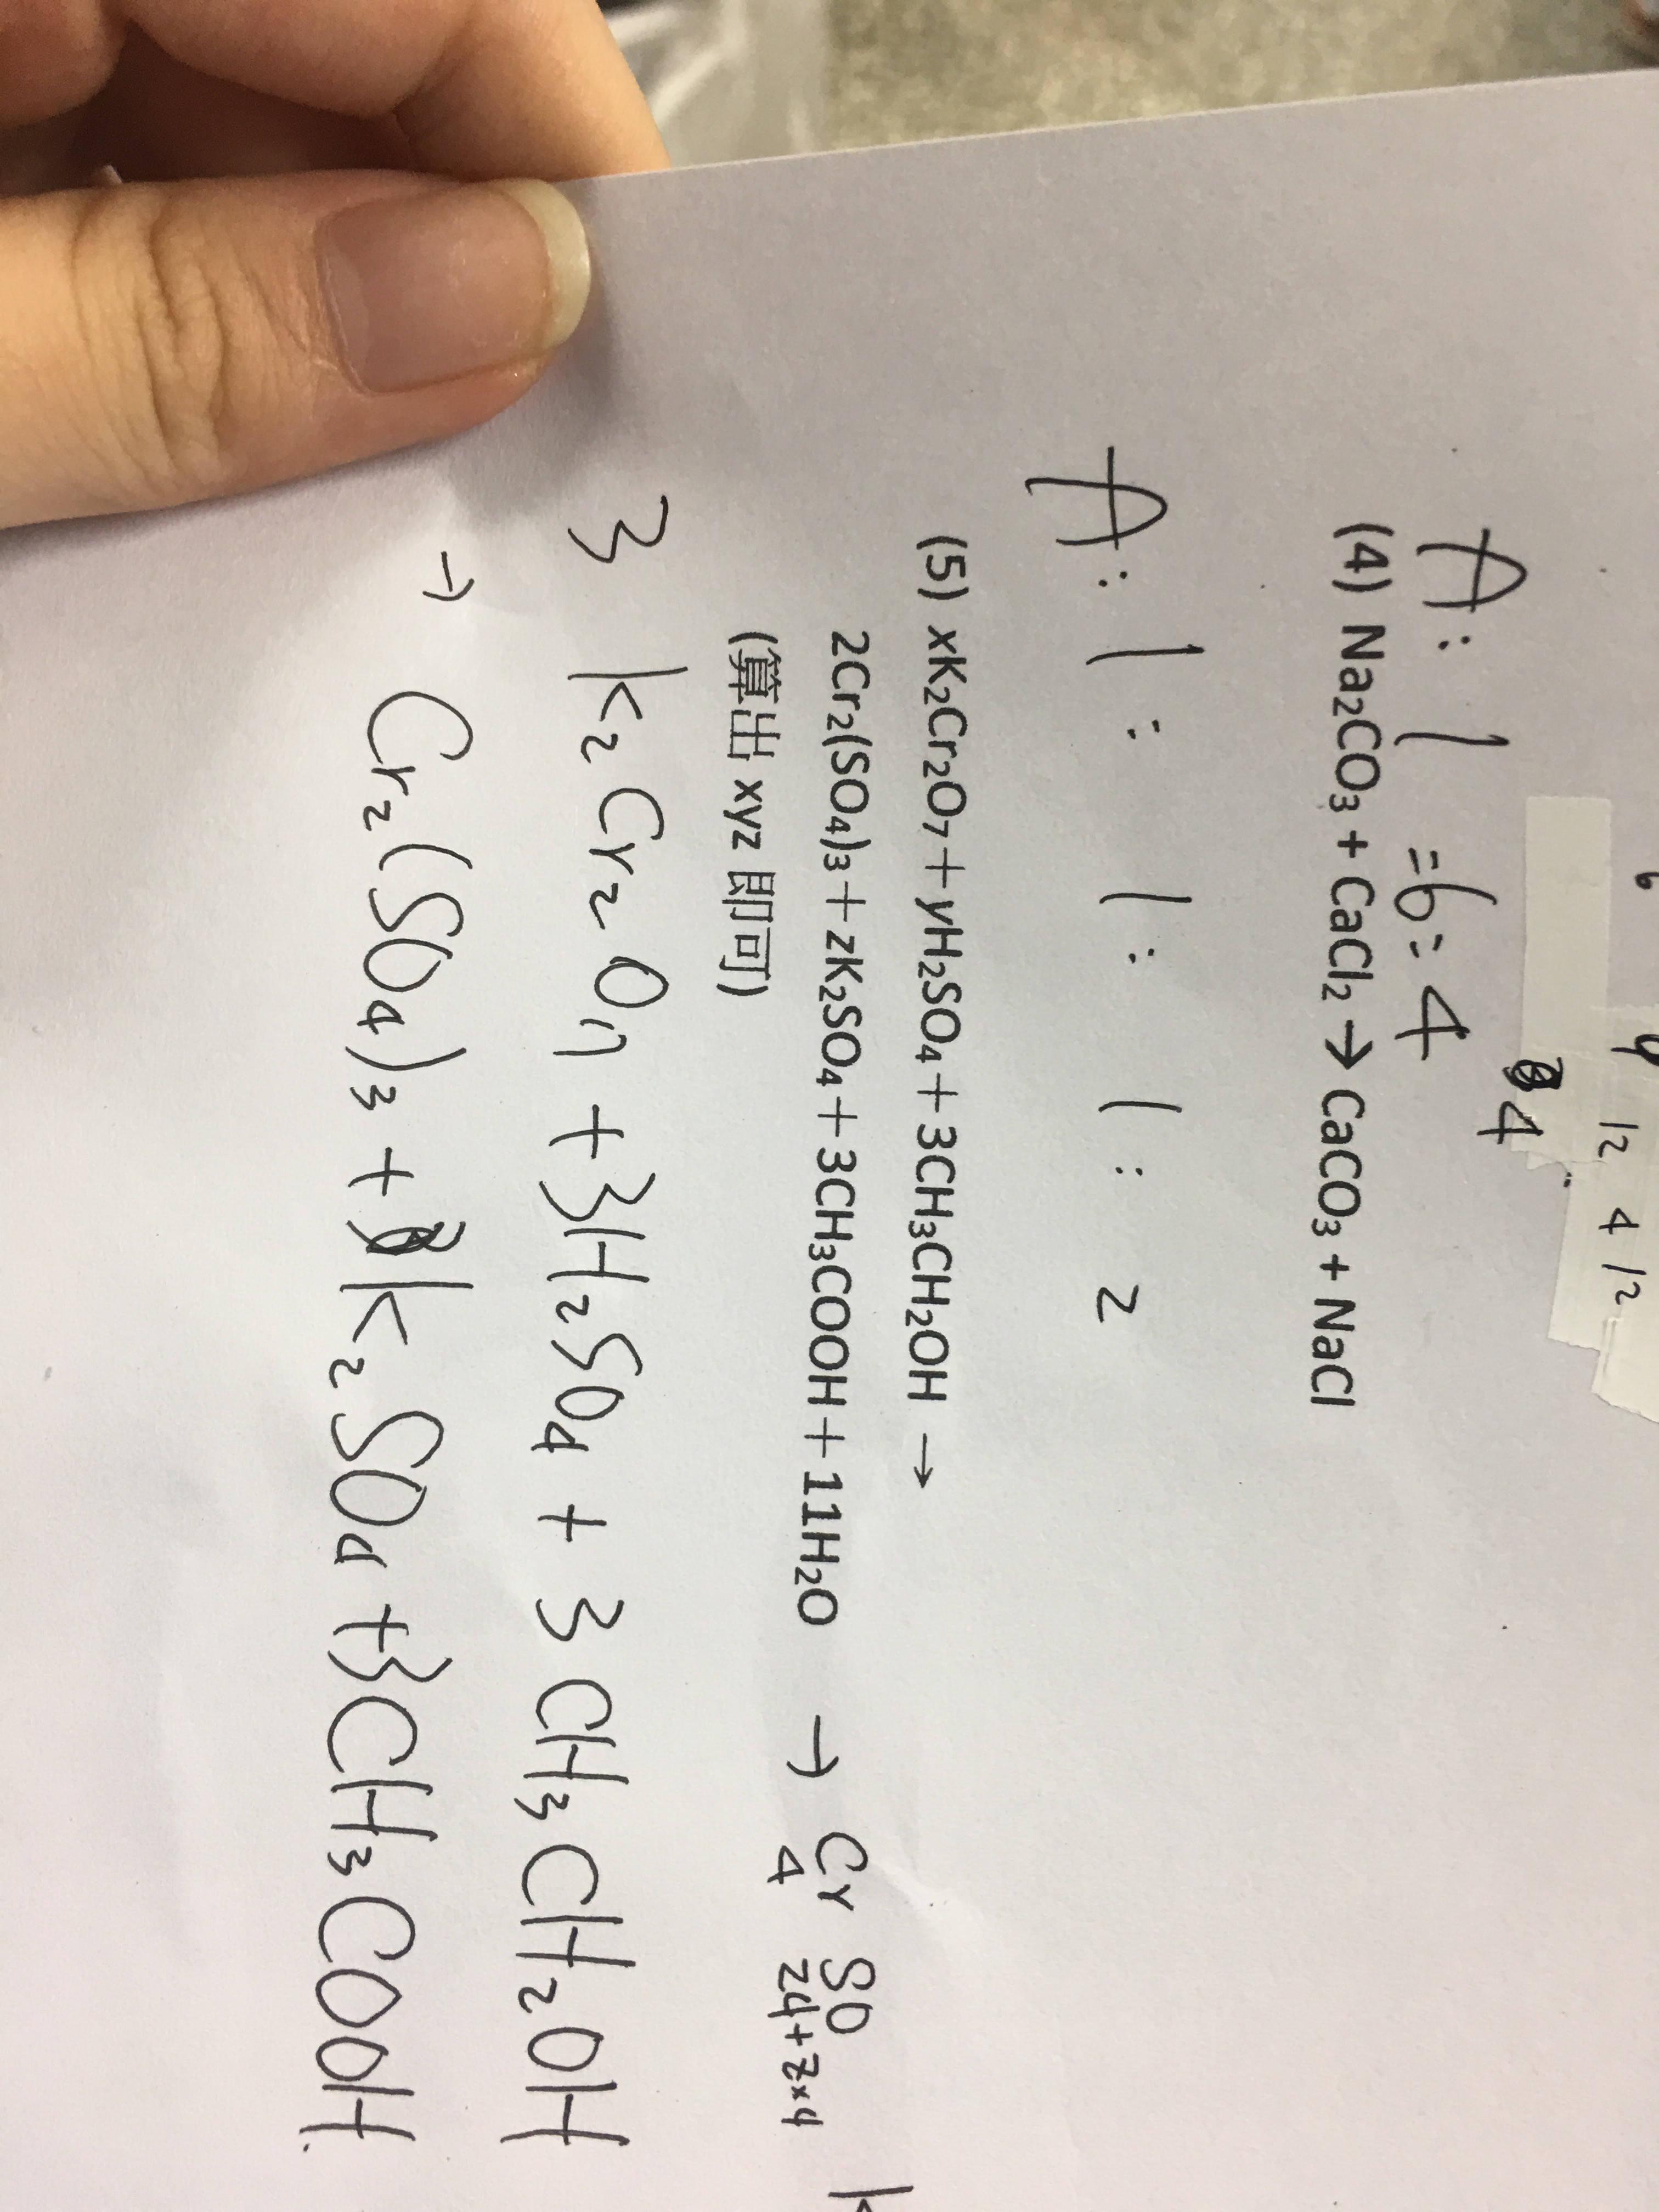 6 12 4 12
4
A: 1 = 6 = 4
(4) Na₂CO₃ + CaCl₂ → CaCO₃ + NaCl
A: 1 : 1 : 1 : 2
(5) xK₂Cr₂O₇ + yH₂SO₄ + 3CH₃CH₂OH →
2Cr₂(SO₄)₃ + zK₂SO₄ + 3CH₃COOH + 11H₂O → Cr SO
4 24+z×4
(算出 xyz 即可)
3 K₂Cr₂O₇ + 3H₂SO₄ + 3 CH₃CH₂OH
→ Cr₂(SO₄)₃ + K₂SO₄ + 3CH₃COOH